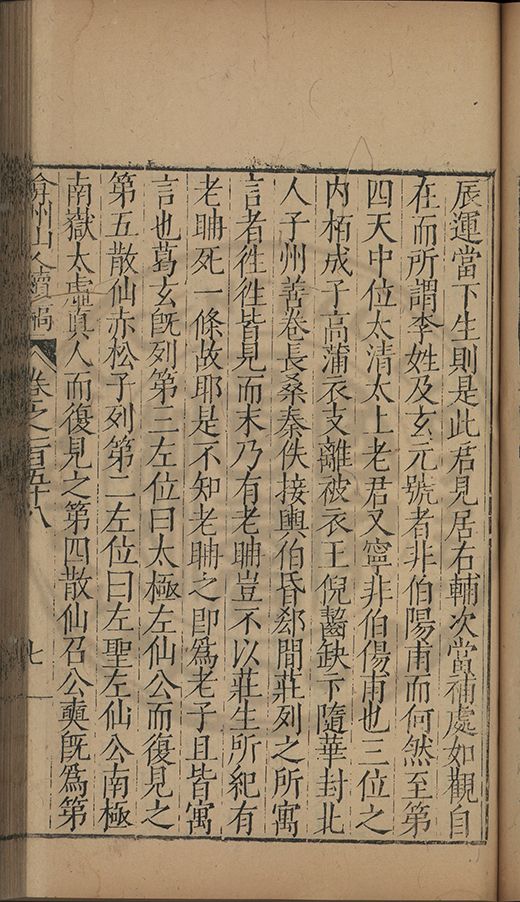 辰運當下生則是此君見居右輔次當補處如觀自
在而所謂李姓及玄元號者非伯陽甫而何然至第
四天中位太清太上老君又寧非伯傷甫也三位之
内栢成子高蒲衣支離被衣王倪齧缺卞隨華封北
人子州善卷長桑秦佚接輿伯昏郄間莊列之所寓
言者徃徃皆見而末乃有老聃豈不以莊生所紀有
老聃死一條故耶是不知老聃之即爲老子且皆寓
言也葛玄旣列第三左位曰太極左仙公而復見之
第五散仙赤松子列第二左位曰左聖左仙公南極
南嶽太虛眞人而復見之第四散仙召公奭旣爲第
弇州山人續稿 卷之一百五十八 七